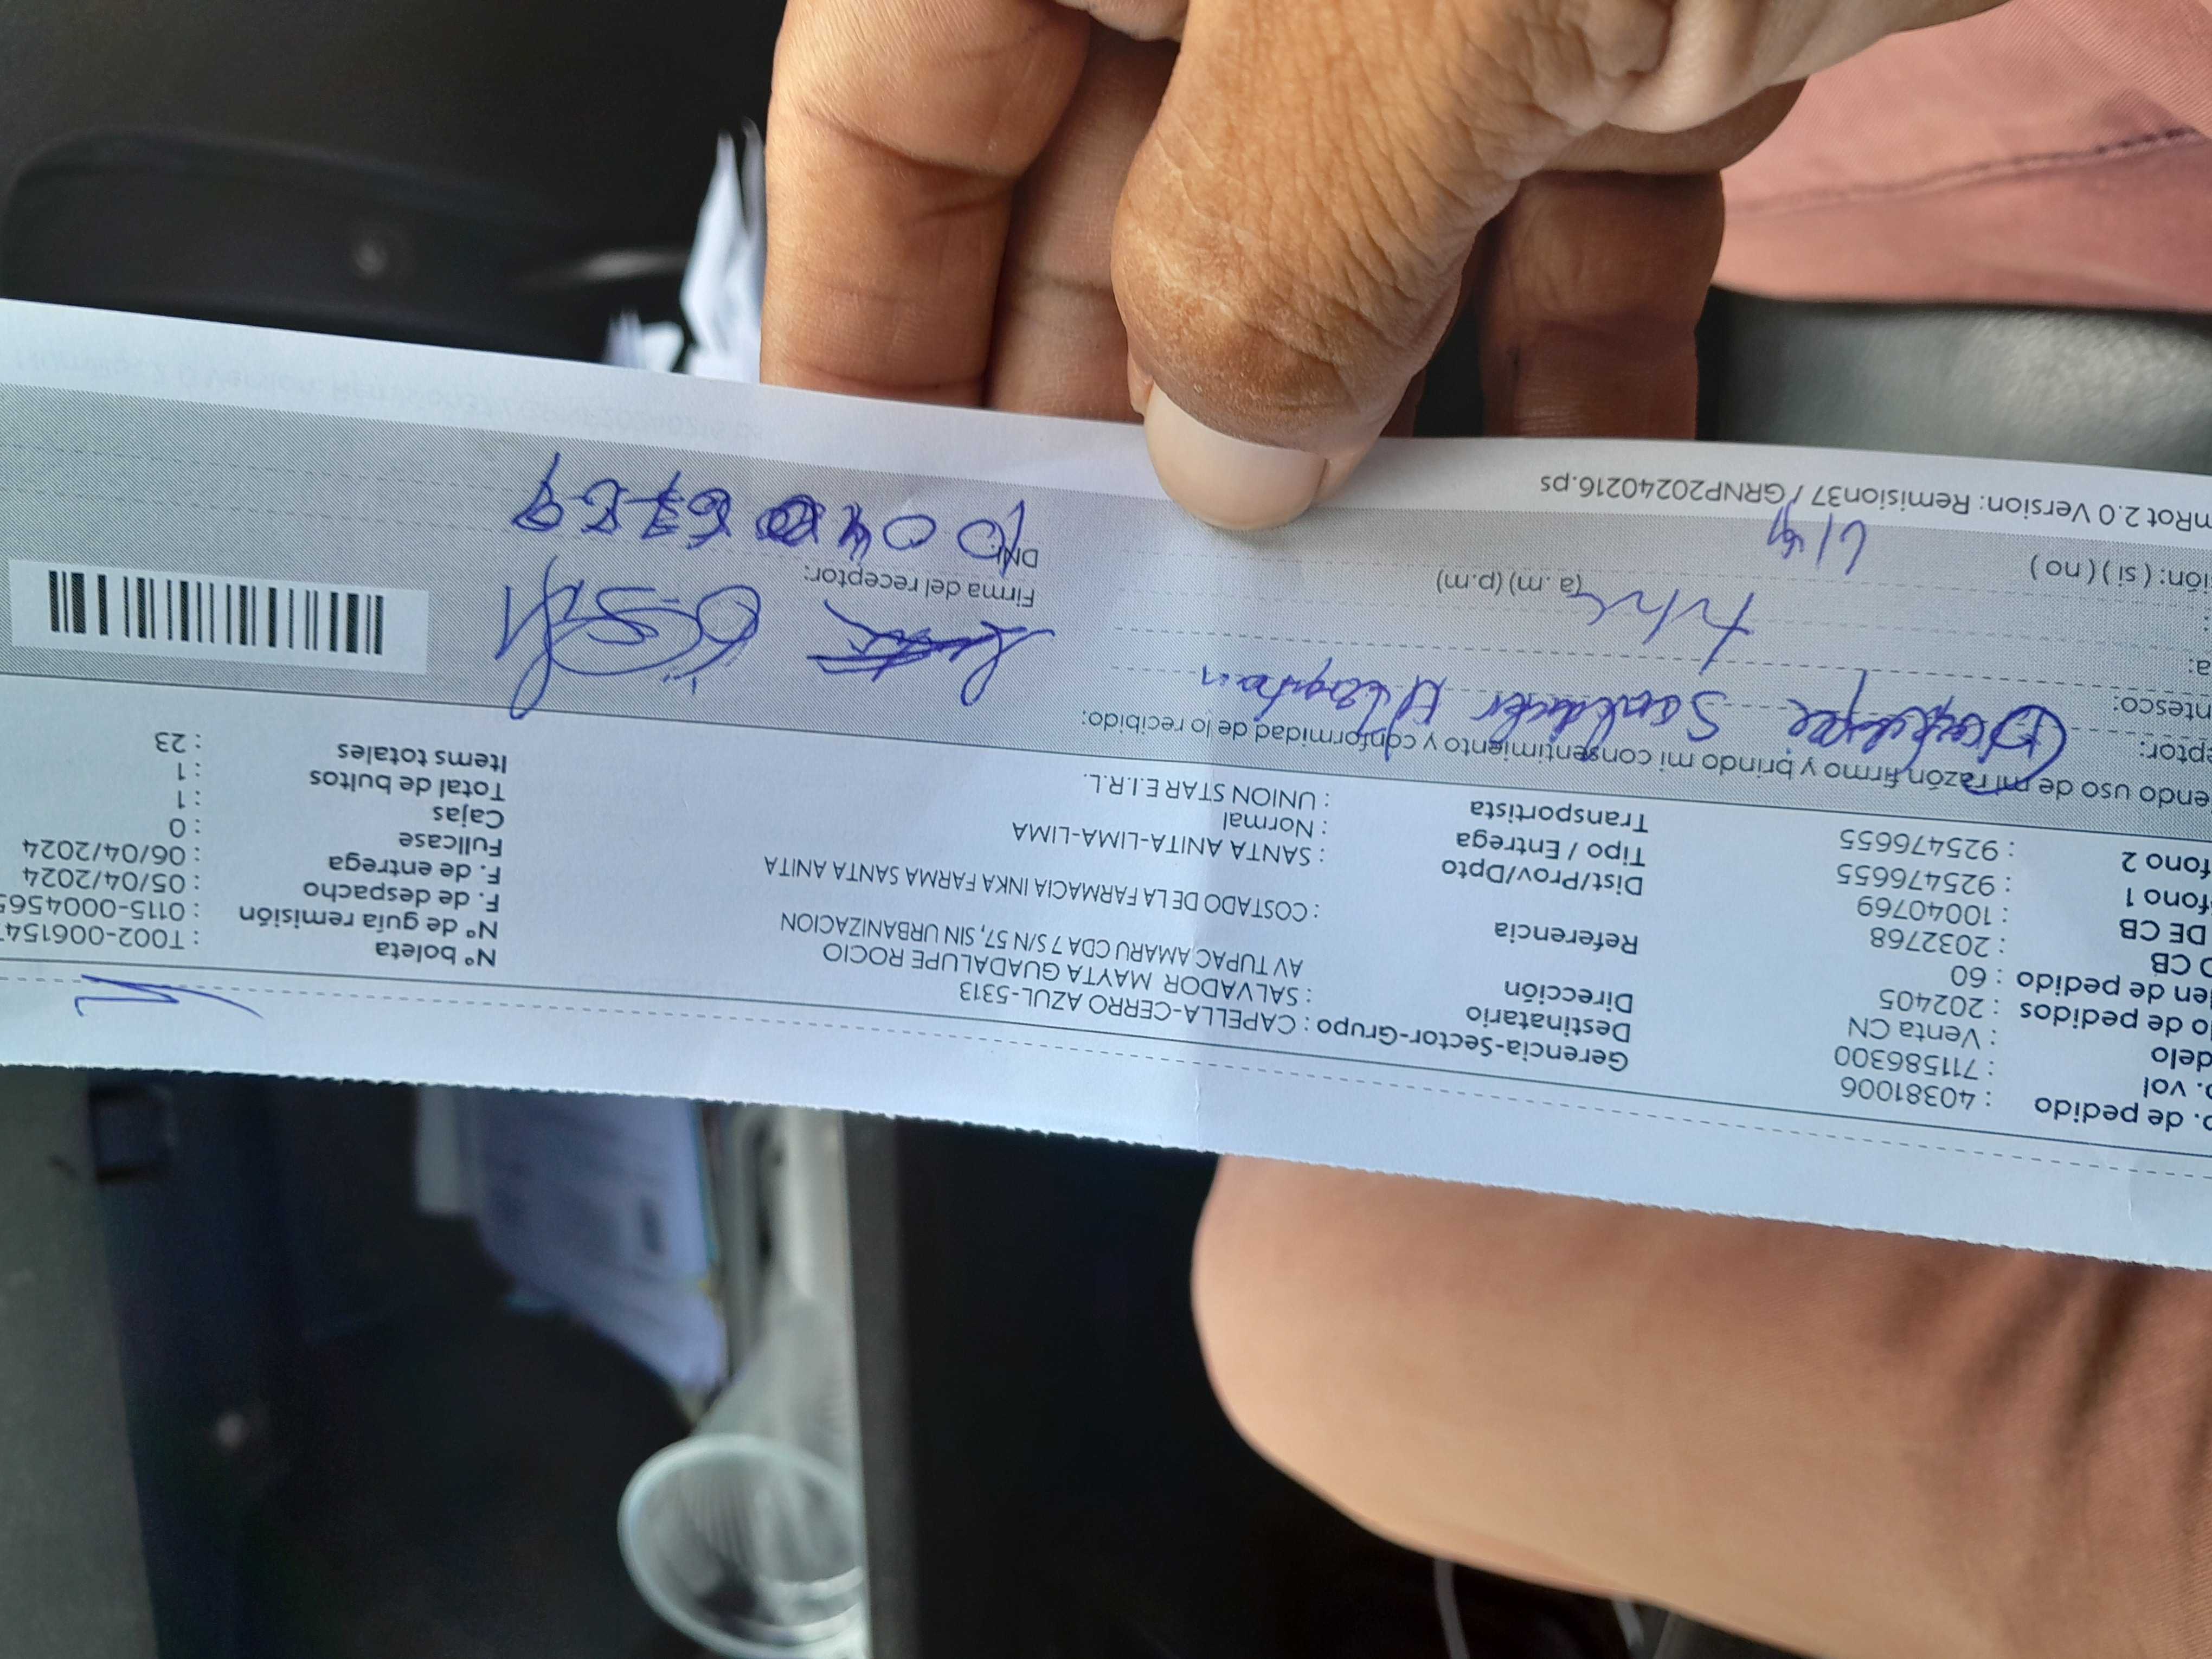 o. de pedido : 40381006
o. vol : 711586300
delo : Venta CN
o de pedidos : 202405
en de pedido : 60
O CB : 2032768
DE CB : 10040769
fono 1 : 925476655
fono 2 : 925476655
Gerencia-Sector-Grupo : CAPELLA-CERRO AZUL-5313
Destinatario : SALVADOR MAYTA GUADALUPE ROCIO
Dirección AV TUPAC AMARU CDA 7 S/N 57, SIN URBANIZACION
Referencia : COSTADO DE LA FARMACIA INKA FARMA SANTA ANITA
Dist/Prov/Dpto : SANTA ANITA-LIMA-LIMA
Tipo / Entrega : Normal
Transportista : UNION STAR E.I.R.L.
Nº boleta : T002-0061547
Nº de guía remisión : 0115-0004565
F. de despacho : 05/04/2024
F. de entrega : 06/04/2024
Fullcase : 0
Cajas : 1
Total de bultos : 1
Items totales : 23
endo uso de mi razón firmo y brindo mi consentimiento y conformidad de lo recibido:
eptor:
ntesco:
a:
:
(a. m) (p.m)
ión: ( si ) ( no )
Firma del receptor:
DNI:
mRot 2.0 Version: Remision37 / GRNP20240216.ps